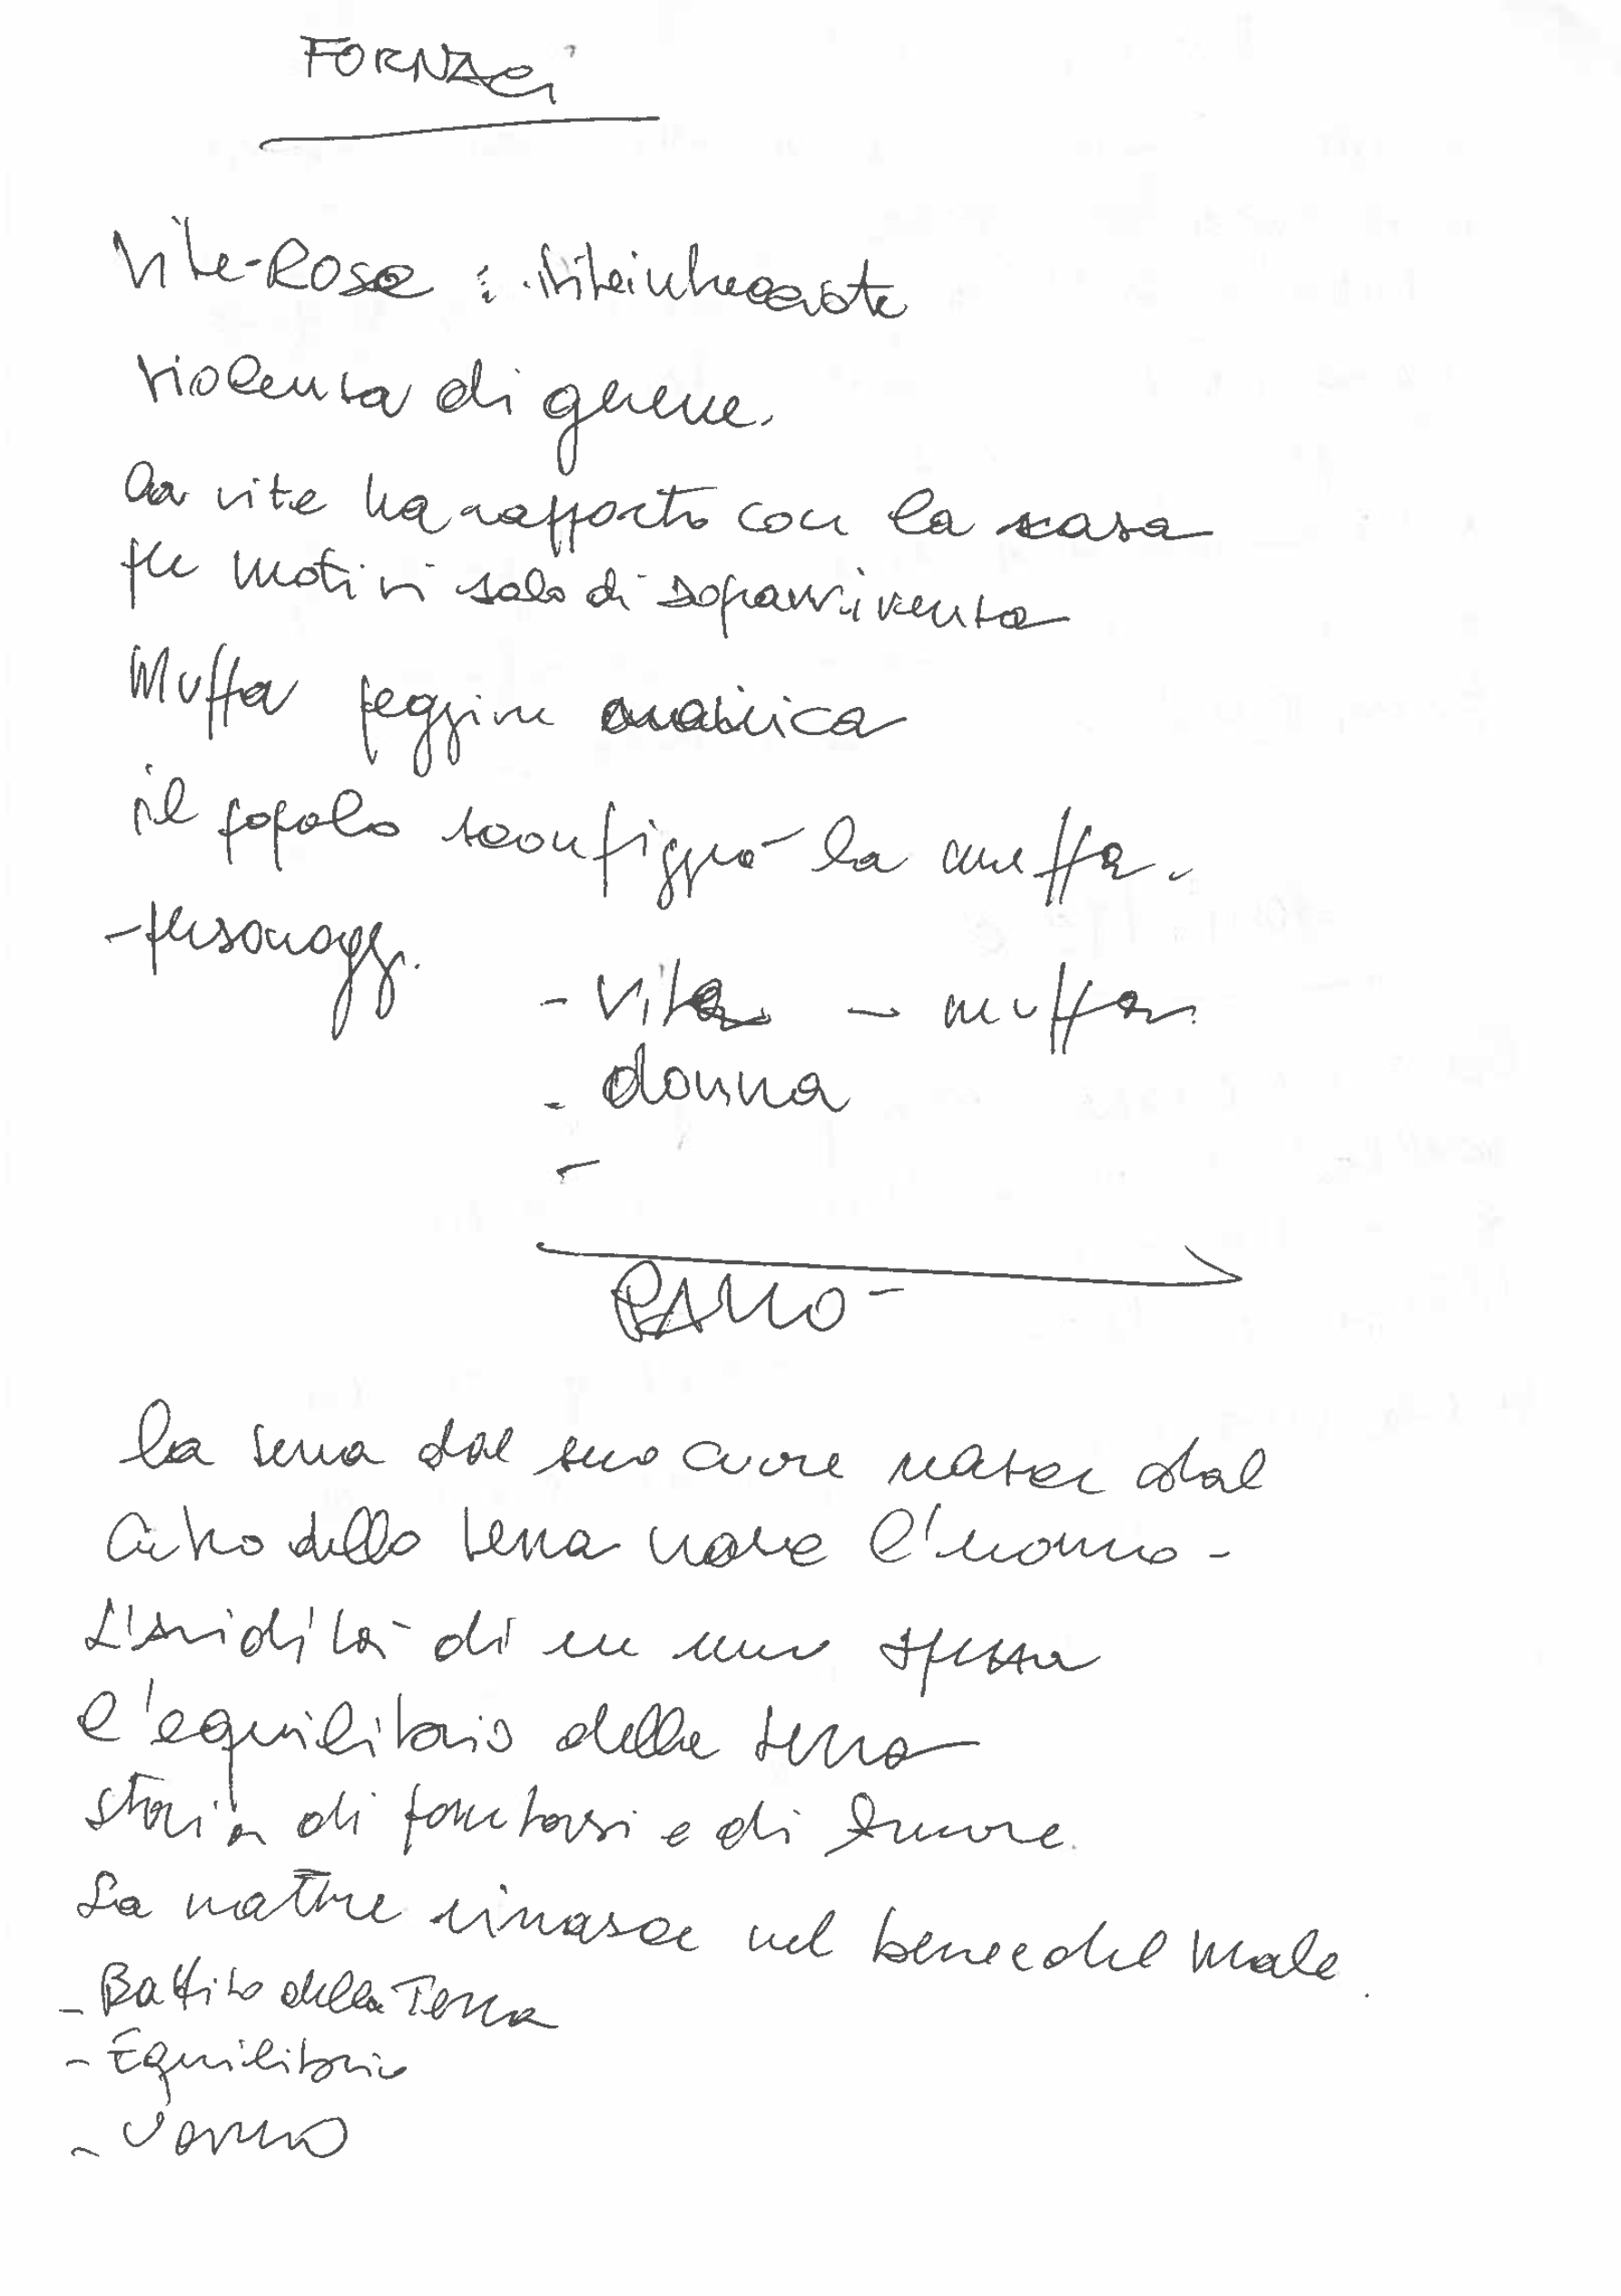 FORNACI
Vite-Rosa : Vite intrecciate
violenza di genere.
La vite ha rapporto con la casa
per motivi solo di sopravvivenza
Muffa peggiore
il popolo sconfigge la muffa.
- personaggi.
- Vite - muffa
- donna
-
RAMO -
la terra dal suo cuore nasce dal
della terra nasce l'uomo -
L'aridità di un uomo spezza
l'equilibrio della terra
storia di fantasi e di
La madre rinasce nel bene e del male.
- Battito della Terra
- Equilibrio
- Uomo